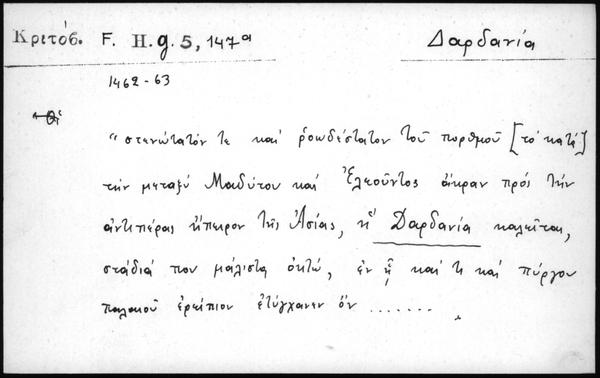 Κριτόβ. F. H.g.5, 147α
Δαρδανία
1462-63
"στενώτατόν τε καὶ ῥοωδέστατον τοῦ πορθμοῦ [τὸ κατὰ]
τὴν μεταξὺ Μαδύτου καὶ Ἐλεοῦντος ἄκραν πρὸς τὴν
ἀντιπέρας ἤπειρον τῆς Ἀσίας, ἣ Δαρδανία καλεῖται,
στάδιά που μάλιστα ὀκτώ, ἐν ᾗ καί τι καὶ πύργου
παλαιοῦ ἐρείπιον ἐτύγχανεν ὄν .......